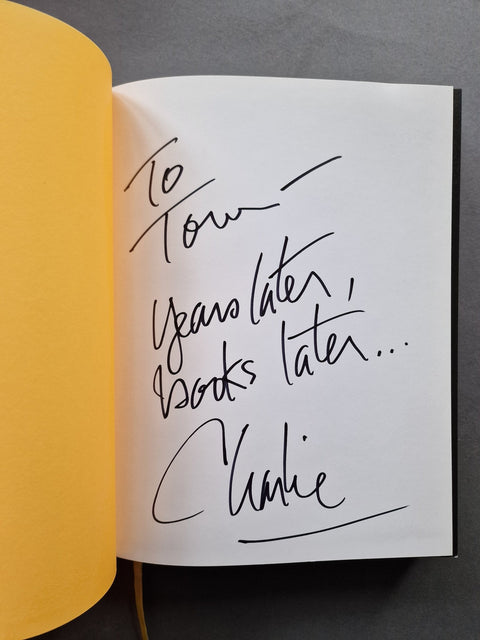 To
Tom —
Years later,
books later...
Charlie